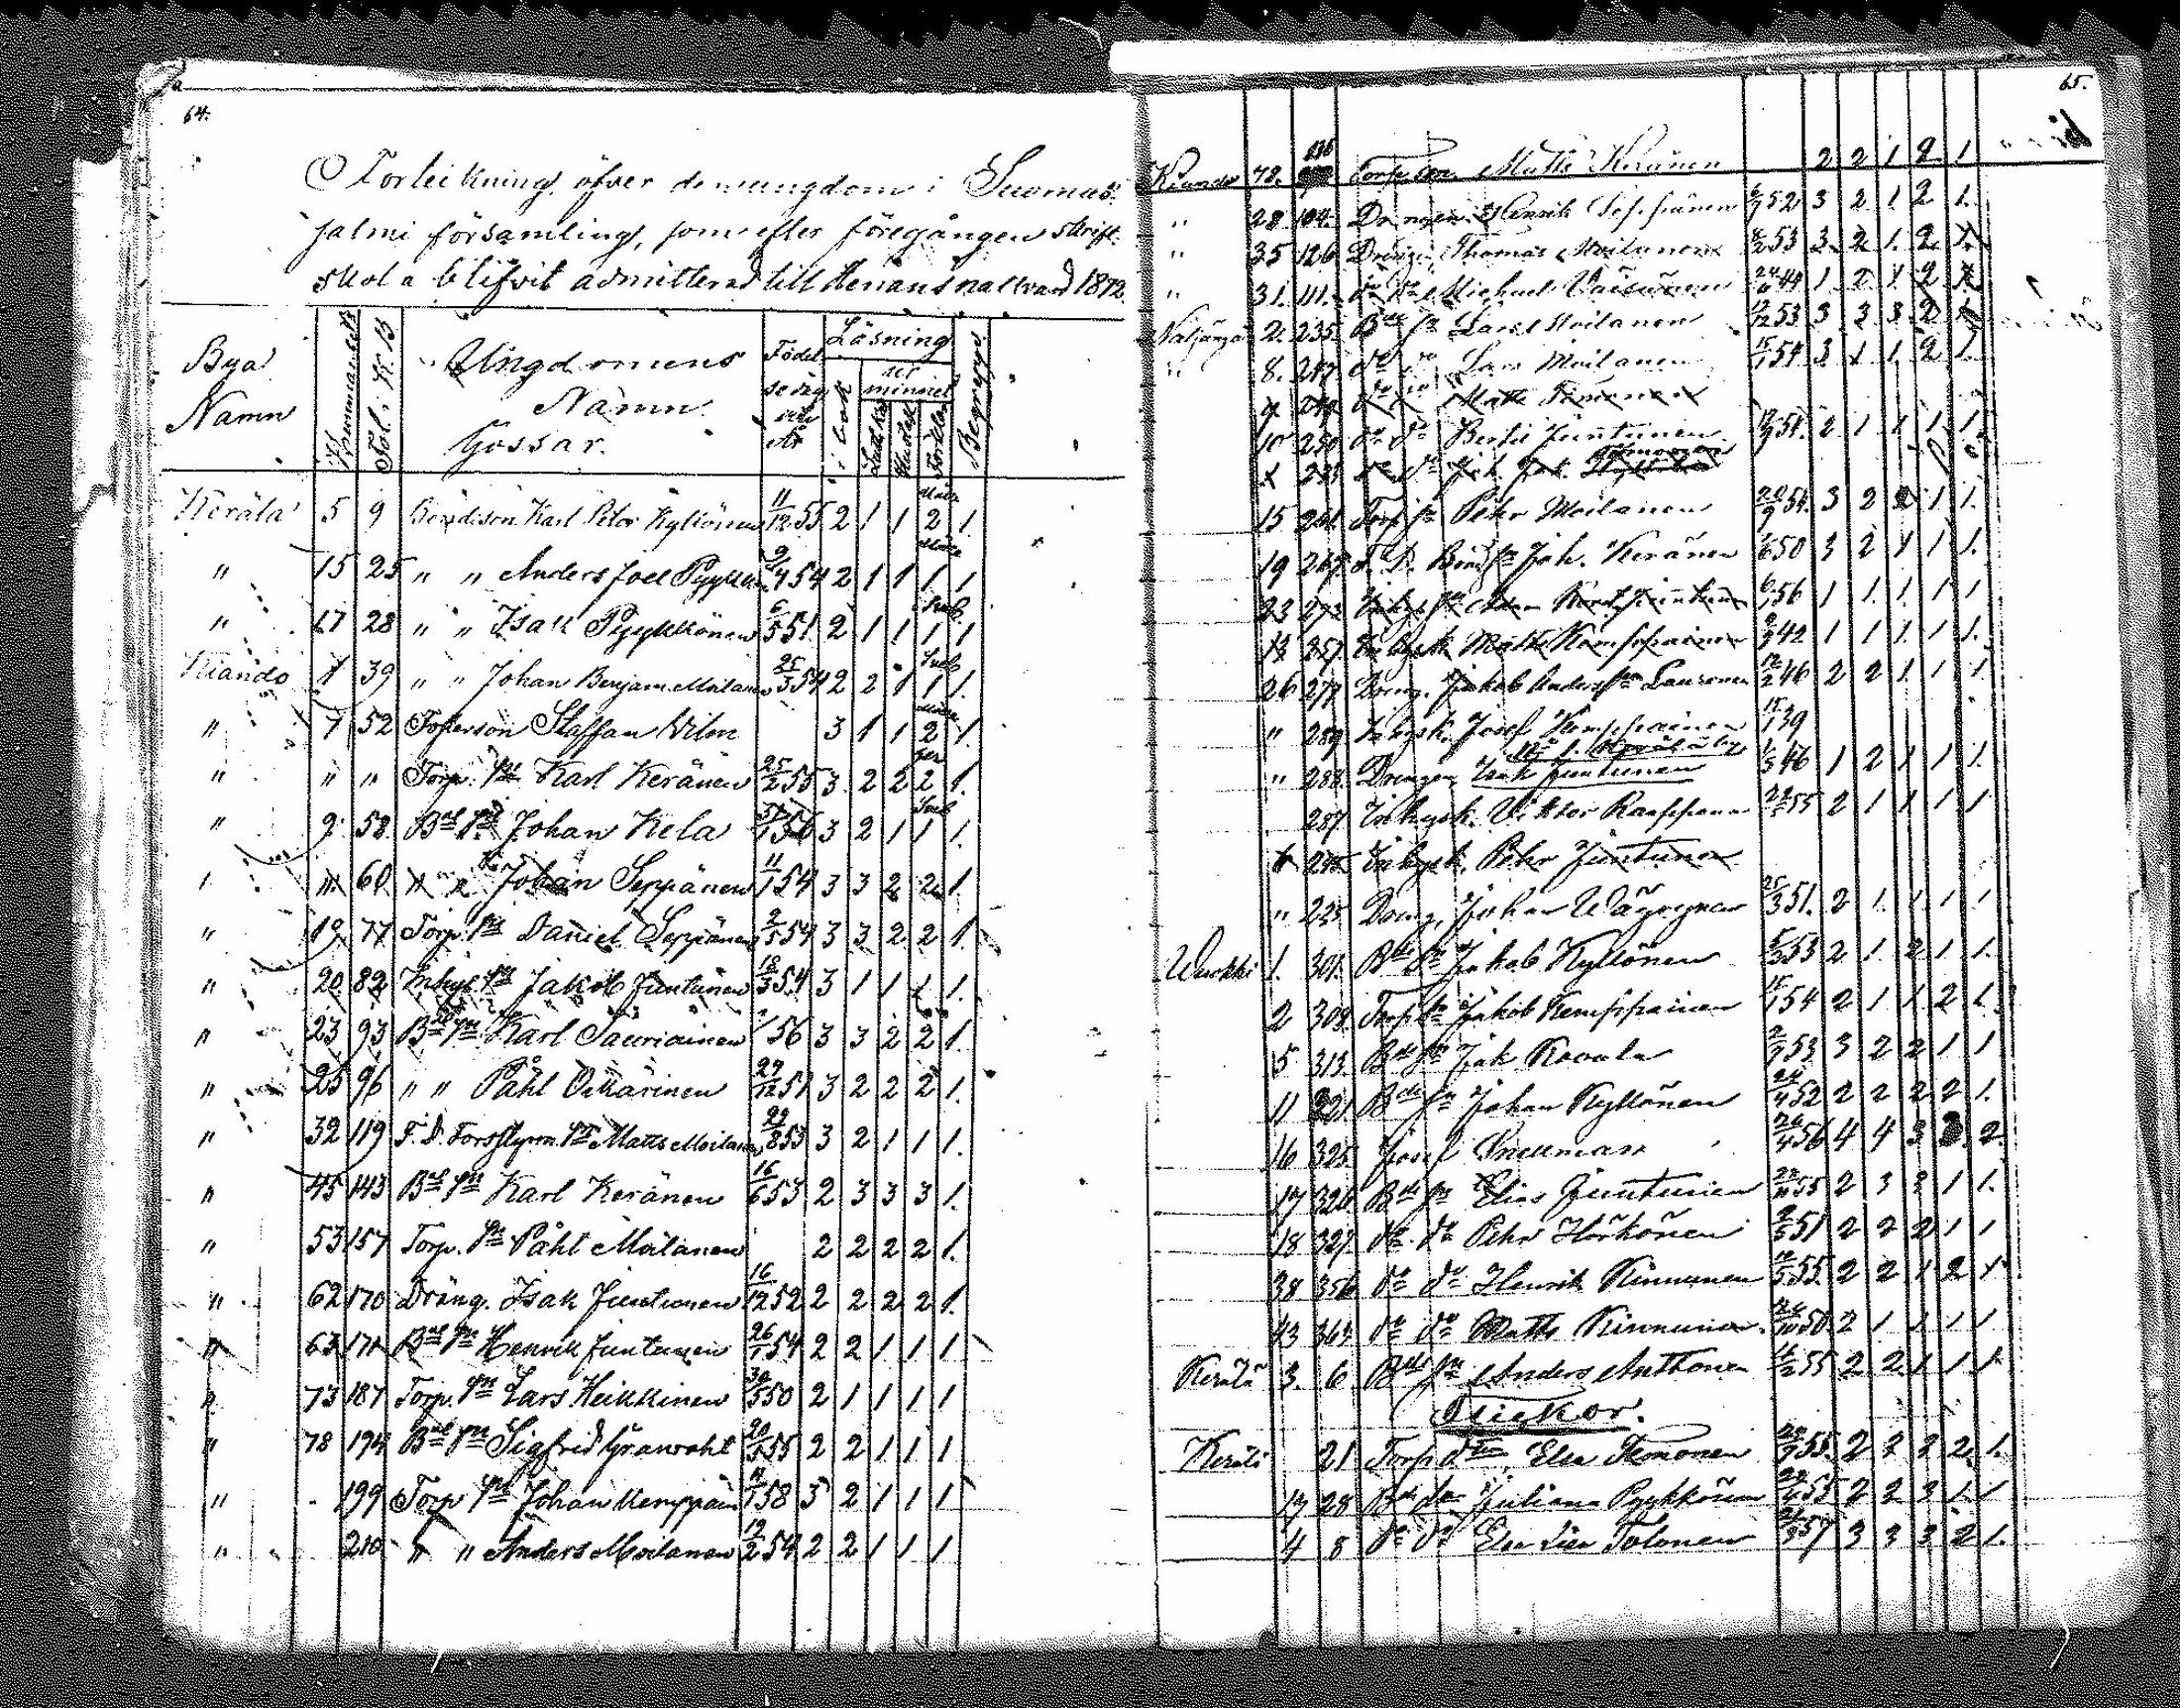 64.
Förteckning öfver den ungdom i Suomus-
salmi församling, som efter föregången skrift-
skola blifvit admitterad till Herrans nattvard 1872.
Bya Namn
Hemmanets №
Fol. i K. B.
Ungdomens Namn Gossar.
Födelsedag och År
Läsning
i bok
ur minnet
Begrepp
Kerälä 5 9 Bondeson Karl Petter Kyllönen 11/12 55 2 1 1 2 1
" 15 25 " " Anders Joel Pyykkö 54 2 1 1 1 1
" 17 28 " " Isak Pyykkönen 6/5 51. 2 1 1 1 1
Kiando 1 39 " " Johan Benjam. Moilanen 25/3 54 2 2 1 1 1.
" 7 52 Staffan 3 1 1 2 1.
" " " Torp. sn Karl Keränen 25/2 55 3 2 2 2 1.
" 9 58. Bde sn Johan Kela 56 3 2 1 1 1.
60 " " Johan Seppänen 11/1 54 3 3 2 2 1.
" 19 77 Torp. sn Daniel Seppänen 2/5 54 3 3 2 2 1.
" 20 82 Inhys. sn Jakob Juntunen 18/3 54 3 1 1 1 1.
" 23 93 Bde sn Karl Sauriainen 56 3 3 2 2 1.
" 25 96 " " Påhl Oikarinen 29/12 51 3 2 2 2 1.
" 32 119 F. D. Matts Moilanen 29/8 53 3 2 1 1 1.
" 45 143 Bde sn Karl Keränen 16/6 53 2 3 3 3 1.
" 53 157 Torp. sn Påhl Moilanen 2 2 2 2 1.
" 62 170 Dräng. Isak Juntunen 16/12 52 2 2 2 2 1.
" 63 171 Bde sn Henrik Juntunen 26/1 54 2 2 1 1 1
" 73 187 Torp. sn Lars Heikkinen 30/5 50 2 1 1 1 1
" 78 194 Bde sn Sigfrid Granroht 55 2 2 1 1 1
" 199 Torp sn Johan Kemppain 58 3 2 1 1 1
" 210 " " Anders Moilanen 19/2 54 2 2 1 1 1
65.
Kiando 78. Torp son Matts Keränen 2 2 1 2 1
" 28 104. Drängen Henrik Seppänen 52 3 2 1 2 1.
" 35 126 Dräng. Thomas Moilanen 53 3 2 1. 2 1.
" 31. 111. Michael Väisänen 24/6 44 1 2 1 2 1
Näljängä 2. 235. Bde sn Lars Moilanen 53 3 3 3 2 1
" 8. 247. do do Lars Moilanen 15/1 54 3 1 1. 2 1.
do do Matts Timonen
10 250 do do Bertil Juntunen 54. 2 1 1 1 1.
do do
15 261. Torp sn Pehr Moilanen 20/9 54. 3 2 2 1 1.
19 267. F. D. Bond sn Joh. Keränen 50 3 2 1 1 1.
23 273. 56 1 1. 1. 1 1
257. Inhysk. Matts Kemppainen 42 1 1 1. 1 1.
26 277 Dräng. Jakob Anders sn Lauronen 46 2 2 1 1 1
" 289 Inhysk. Josef Kemppainen 39
" 288. Drängen Isak Juntunen 46 1 2 1 1 1.
287 Inhysk. Viktor Rasppana 55 2 1 1 1 1
Inhysk. Pehr Juntunen
" 225 Dräng, Johan Wäyrynen 25/3 51. 2 1. 1. 1 1
Wuokki 1. 301. Bde sn Jakob Kyllönen 5/3 53 2 1 2 1 1.
2 308. Torp sn Jakob Kemppainen 15/1 54 2 1 1. 2 1.
5 313. Bde sn Joh Kovala 53. 3 2 2 1 1
11 321. Bde sn Johan Kyllönen 24/4 52 2 2 2 2 1.
16 325. Josef Snellman 26/4 56 4 4 3 3. 2.
17 326 Bde sn Elias Juntunen 55 2 3 3 1 1.
18 327. do do Pehr Härkönen 51 2 2 2 1 1
38 356 do do Henrik Kinnunen 55 2 2 1 2 1
43 364. do do Matts Kinnunen. 50. 2 1 1 1 1
Kerälä 3. 6. Bde sn Anders Anttonen 55 2 2 1 1 1.
Flickor.
Kerälä 21 Torp dtr Elsa Timonen 55. 2 2 2 2. 1.
17 28 Bde dtr Juliana Pyykkönen 55 2 2 3 1. 1
4 8 do do Elsa Lisa Tolonen 57 3 3 3 2 1.